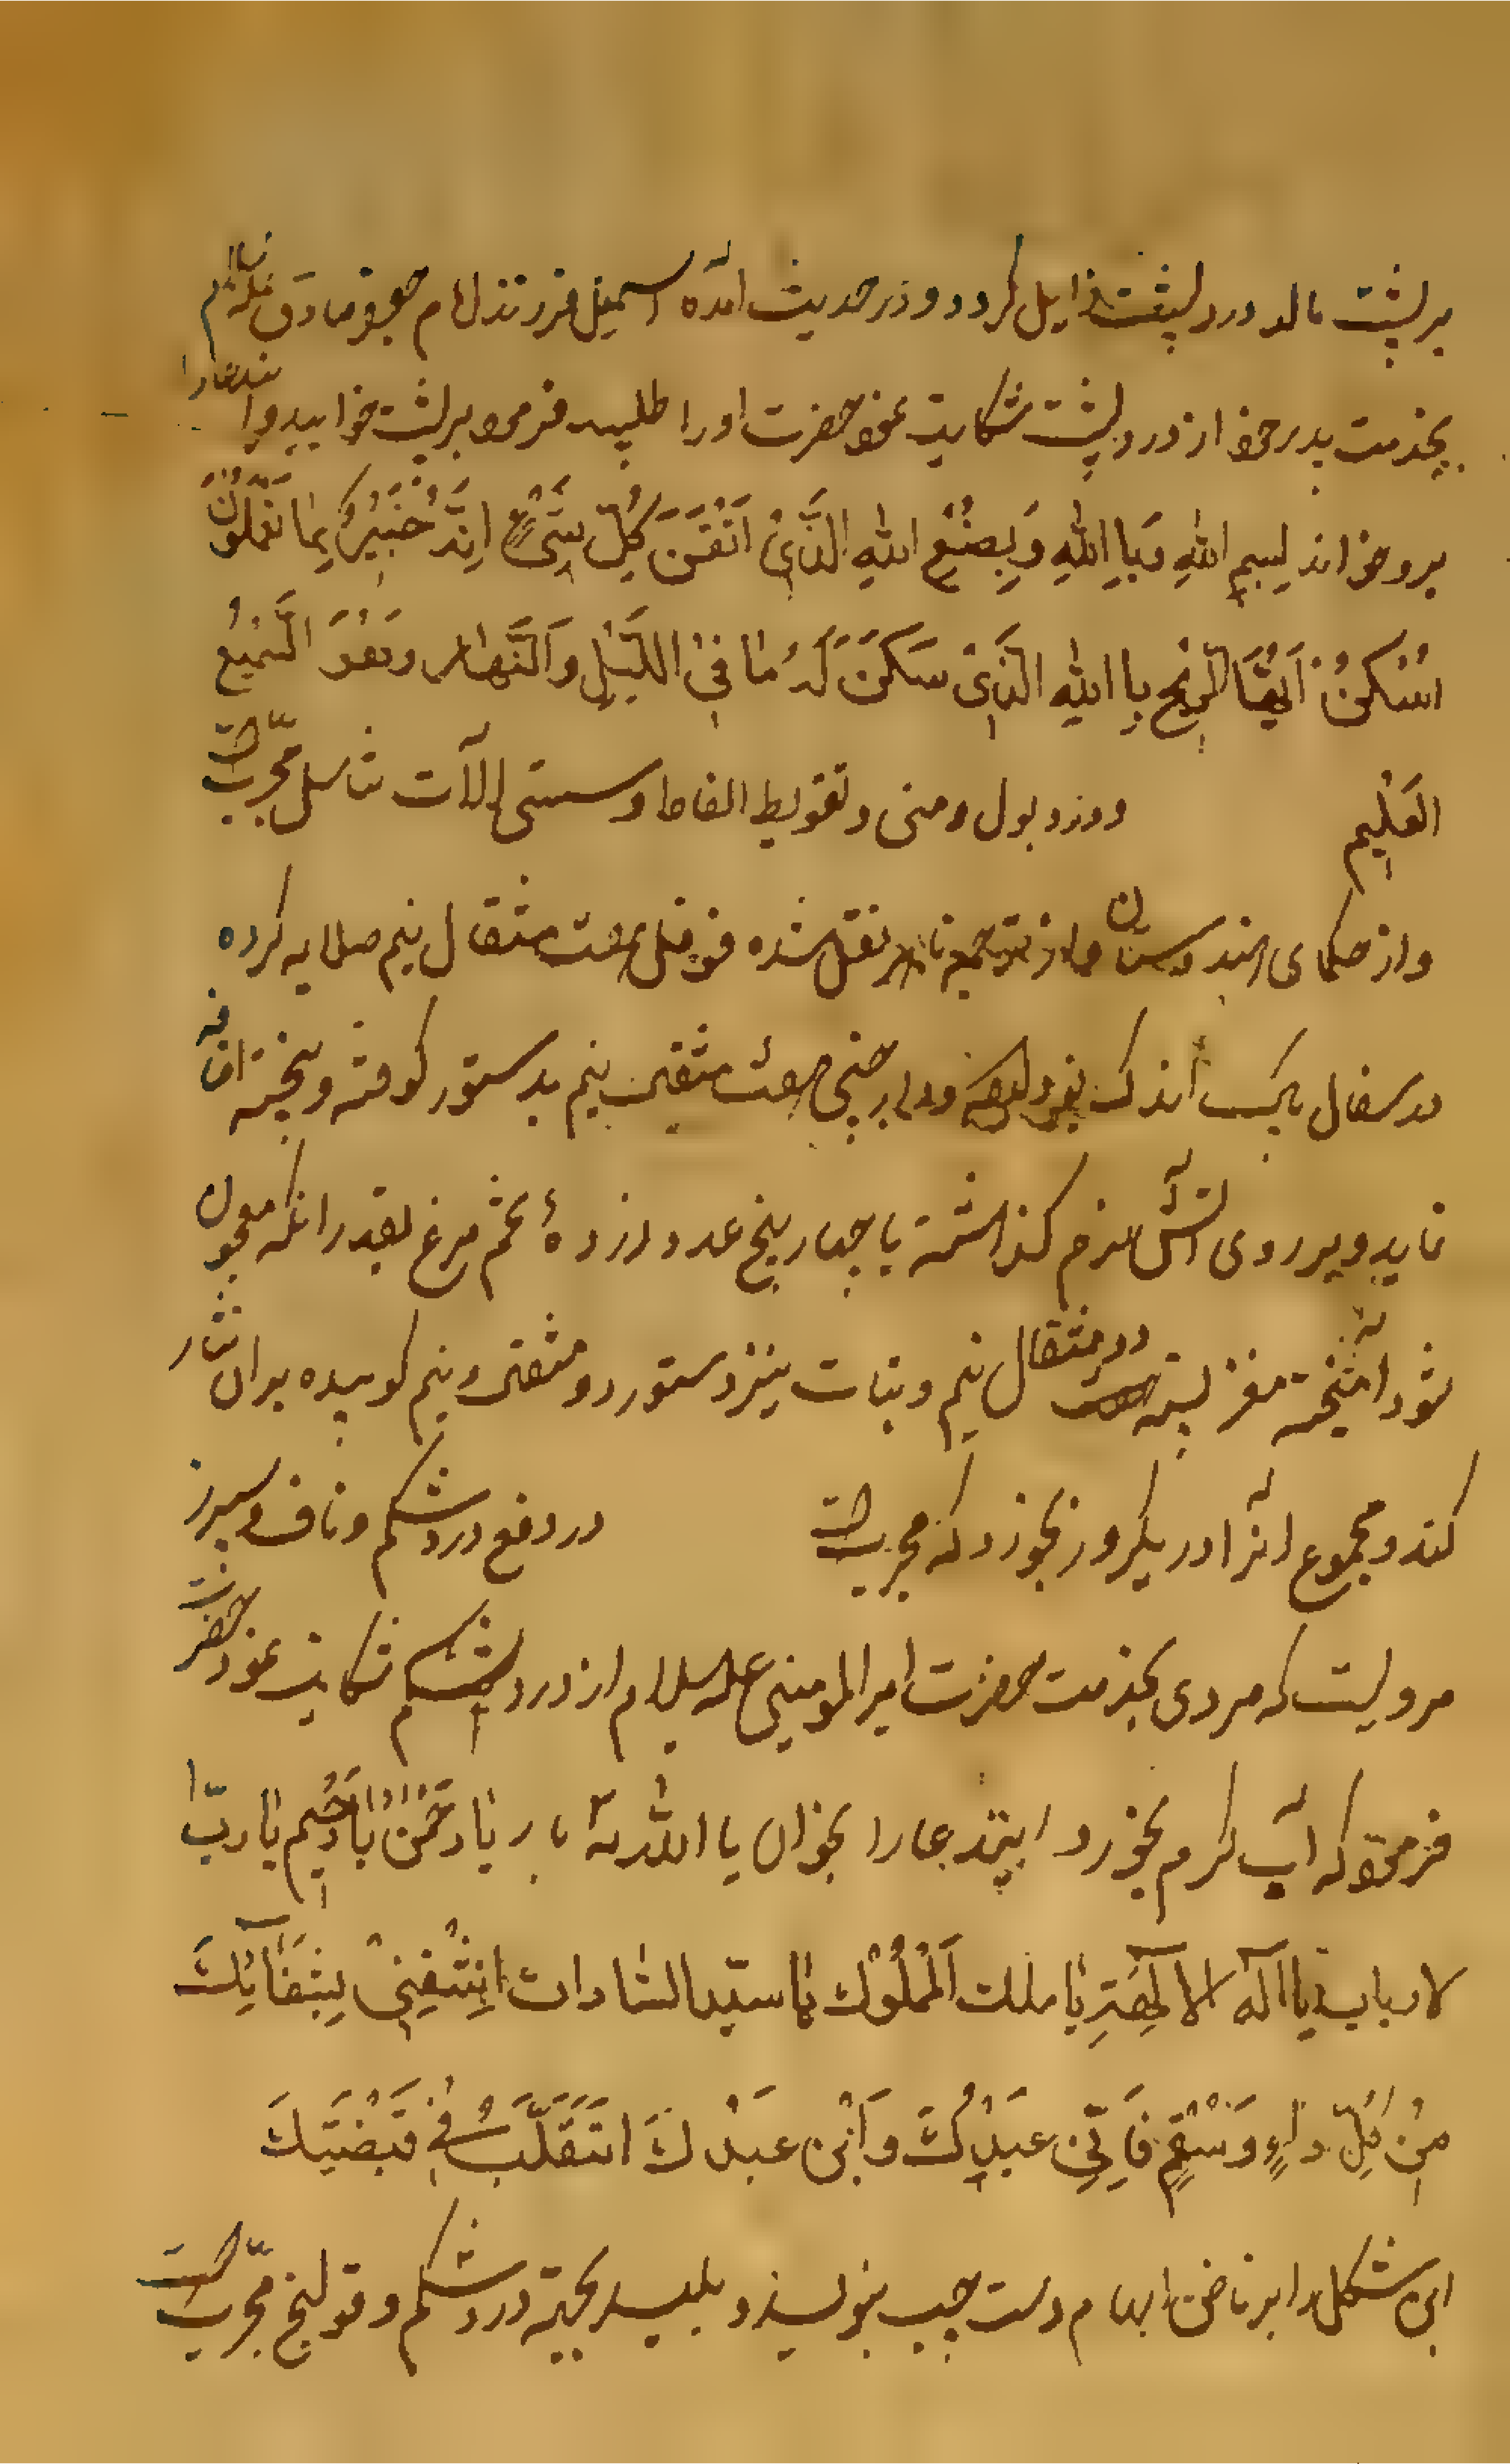 بر پشت مالد درد پشت زایل کردد و در حدیث آمده اسمعیل فرزند امام جعفر صادق علیه السلام
بخدمت پدر خود از درد پشت شکایت نمود حضرت او را طلبیده فرمود بر پشت خوابید و این دعا را
برو خواند بِسمِ اللهِ وَبِااللهِ وَبِصُنْعِ اللهِ الَّذیْ اَتْقَنَ کُلَّ شَیْءٍ اِنَّهُ خَبِیْرٌ بِمٰا تَفْعَلُوْنَ
اُسْکُنْ اَیُّهَا الرّیْحُ بِااللهِ الَّذیْ سَکَنَ لَهُ مٰا فِیْ اللَّیْلِ وَالنَّهٰارِ وَهُوَ السَّمِیْعُ
العَلِیْم و درد بول و منی و تقویط الفاظ و سستی آلات تناسل مجرّبست
و از حکمای هندوستان نقل شده فوفل هفت مثقال نیم صلایه کرده
در سفال یک اندک و دارچنی هفت مثقال نیم بدستور کوفته و بیخته اضافه
نماید و بر روی آتش نرم کذاشته با چهار پنج عدد زردهٔ تخم مرغ بقدر آنکه معجون
شود آمیخته مغز پسته دو مثقال نیم و نبات نیز دستور دو مثقال و نیم کوبیده بر آن نثار
کند و مجموع آنرا در یکروز بخورد که مجربست در دفع درد شکم و ناف و سپرز
مرویست که مردی بخدمت حضرت امیر المومنین علیه السلام از درد شکم شکایت نمود حضرت
فرمود که آب کرم بخورد این دعا را بخوان یا الله سه بار یٰا رَحْمٰنُ یٰا رَحِیْم یٰا رَبّ ا
لارباب یا اله الالِهَةِ یٰا ملک اَلْمُلُوْک یٰا سیّد السّٰادات اِشْفِنِیْ بِشِفٰآئِکَ
مِنْ کُلِّ دٰاءٍ وَ سُقْمٍ فَاِنّی عَبْدُکَ وَابْنُ عَبْدِکَ اَتَقَلَّبُ فِیْ قَبْضَتِکَ
این شکل را بر ناخن ابهام دست چپ بنویسد و بلیسد بجهة درد شکم و قولنج مجرّبست